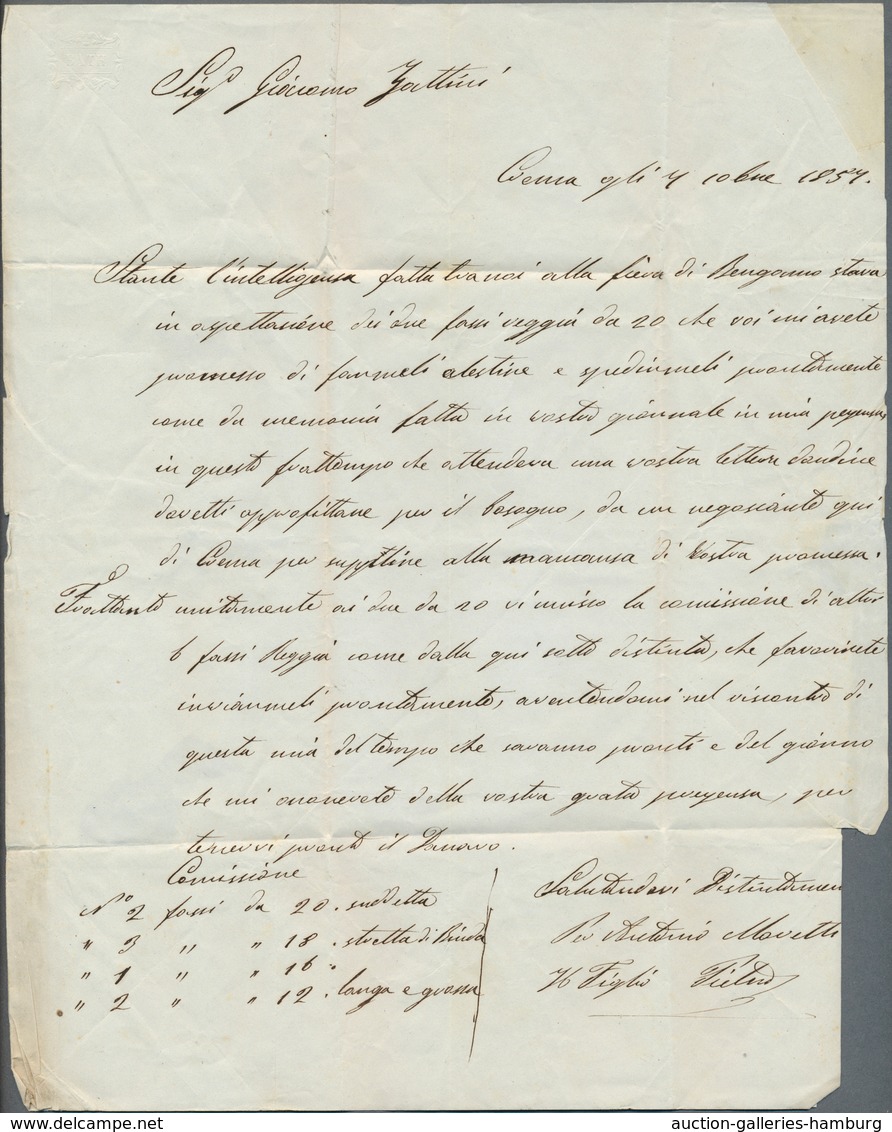 Sig.r Giacomo Zattini
Crema gli 7 10bre 1857.
Stante l'intelligensa fatta tra noi alla fiera di Bergamo stava
in aspettasione dei due fassi reggia da 20 che voi mi avete
promesso di farmeli alestire e spedirmeli prontamente
come da memoria fatta in vostro giornale in mia presensa,
in questo frattempo che attendeva una vostra lettera
dovetti approfittare per il bisogno, da un negosiante qui
di Crema per supplire alla mancansa di vostra promessa.
Frattanto unitamente ai due da 20 vi unisco la comissione di altri
6 fassi Reggia come dalla qui sotto distinta, che favorirete
inviarmeli prontamente, avertendomi nel riscontro di
questa mia del tempo che saranno pronti e del giorno
che mi onorerete della vostra grata presensa, per
tenervi pronto il Danaro.
Comissione
N.o 2 fassi da 20. suddetta
" 3 " " 18. stretta di
" 1 " " 16 "
" 2 " " 12. larga e grossa
Salutandovi Distintamen
Per Antonio Moretti
Il Figlio Pietro
auction-galleries-hamburg